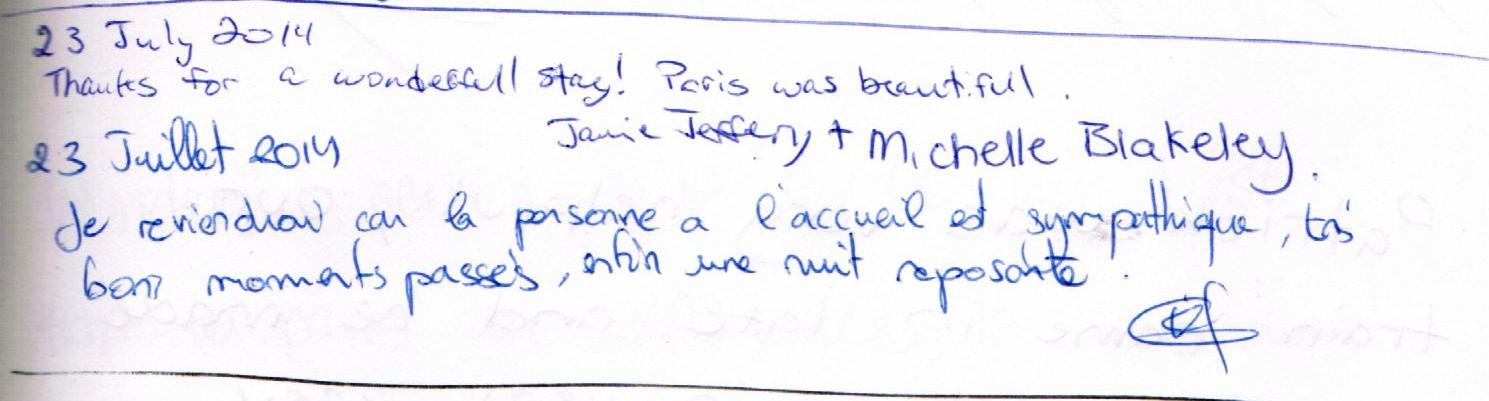 23 July 2014
Thanks for a wonderfull stay! Paris was beautifull.
Jamie Jeffery + Michelle Blakeley.
23 Juillet 2014
Je reviendrai car la personne a l'accueil est sympathique, très
bons moments passés, enfin une nuit reposante.